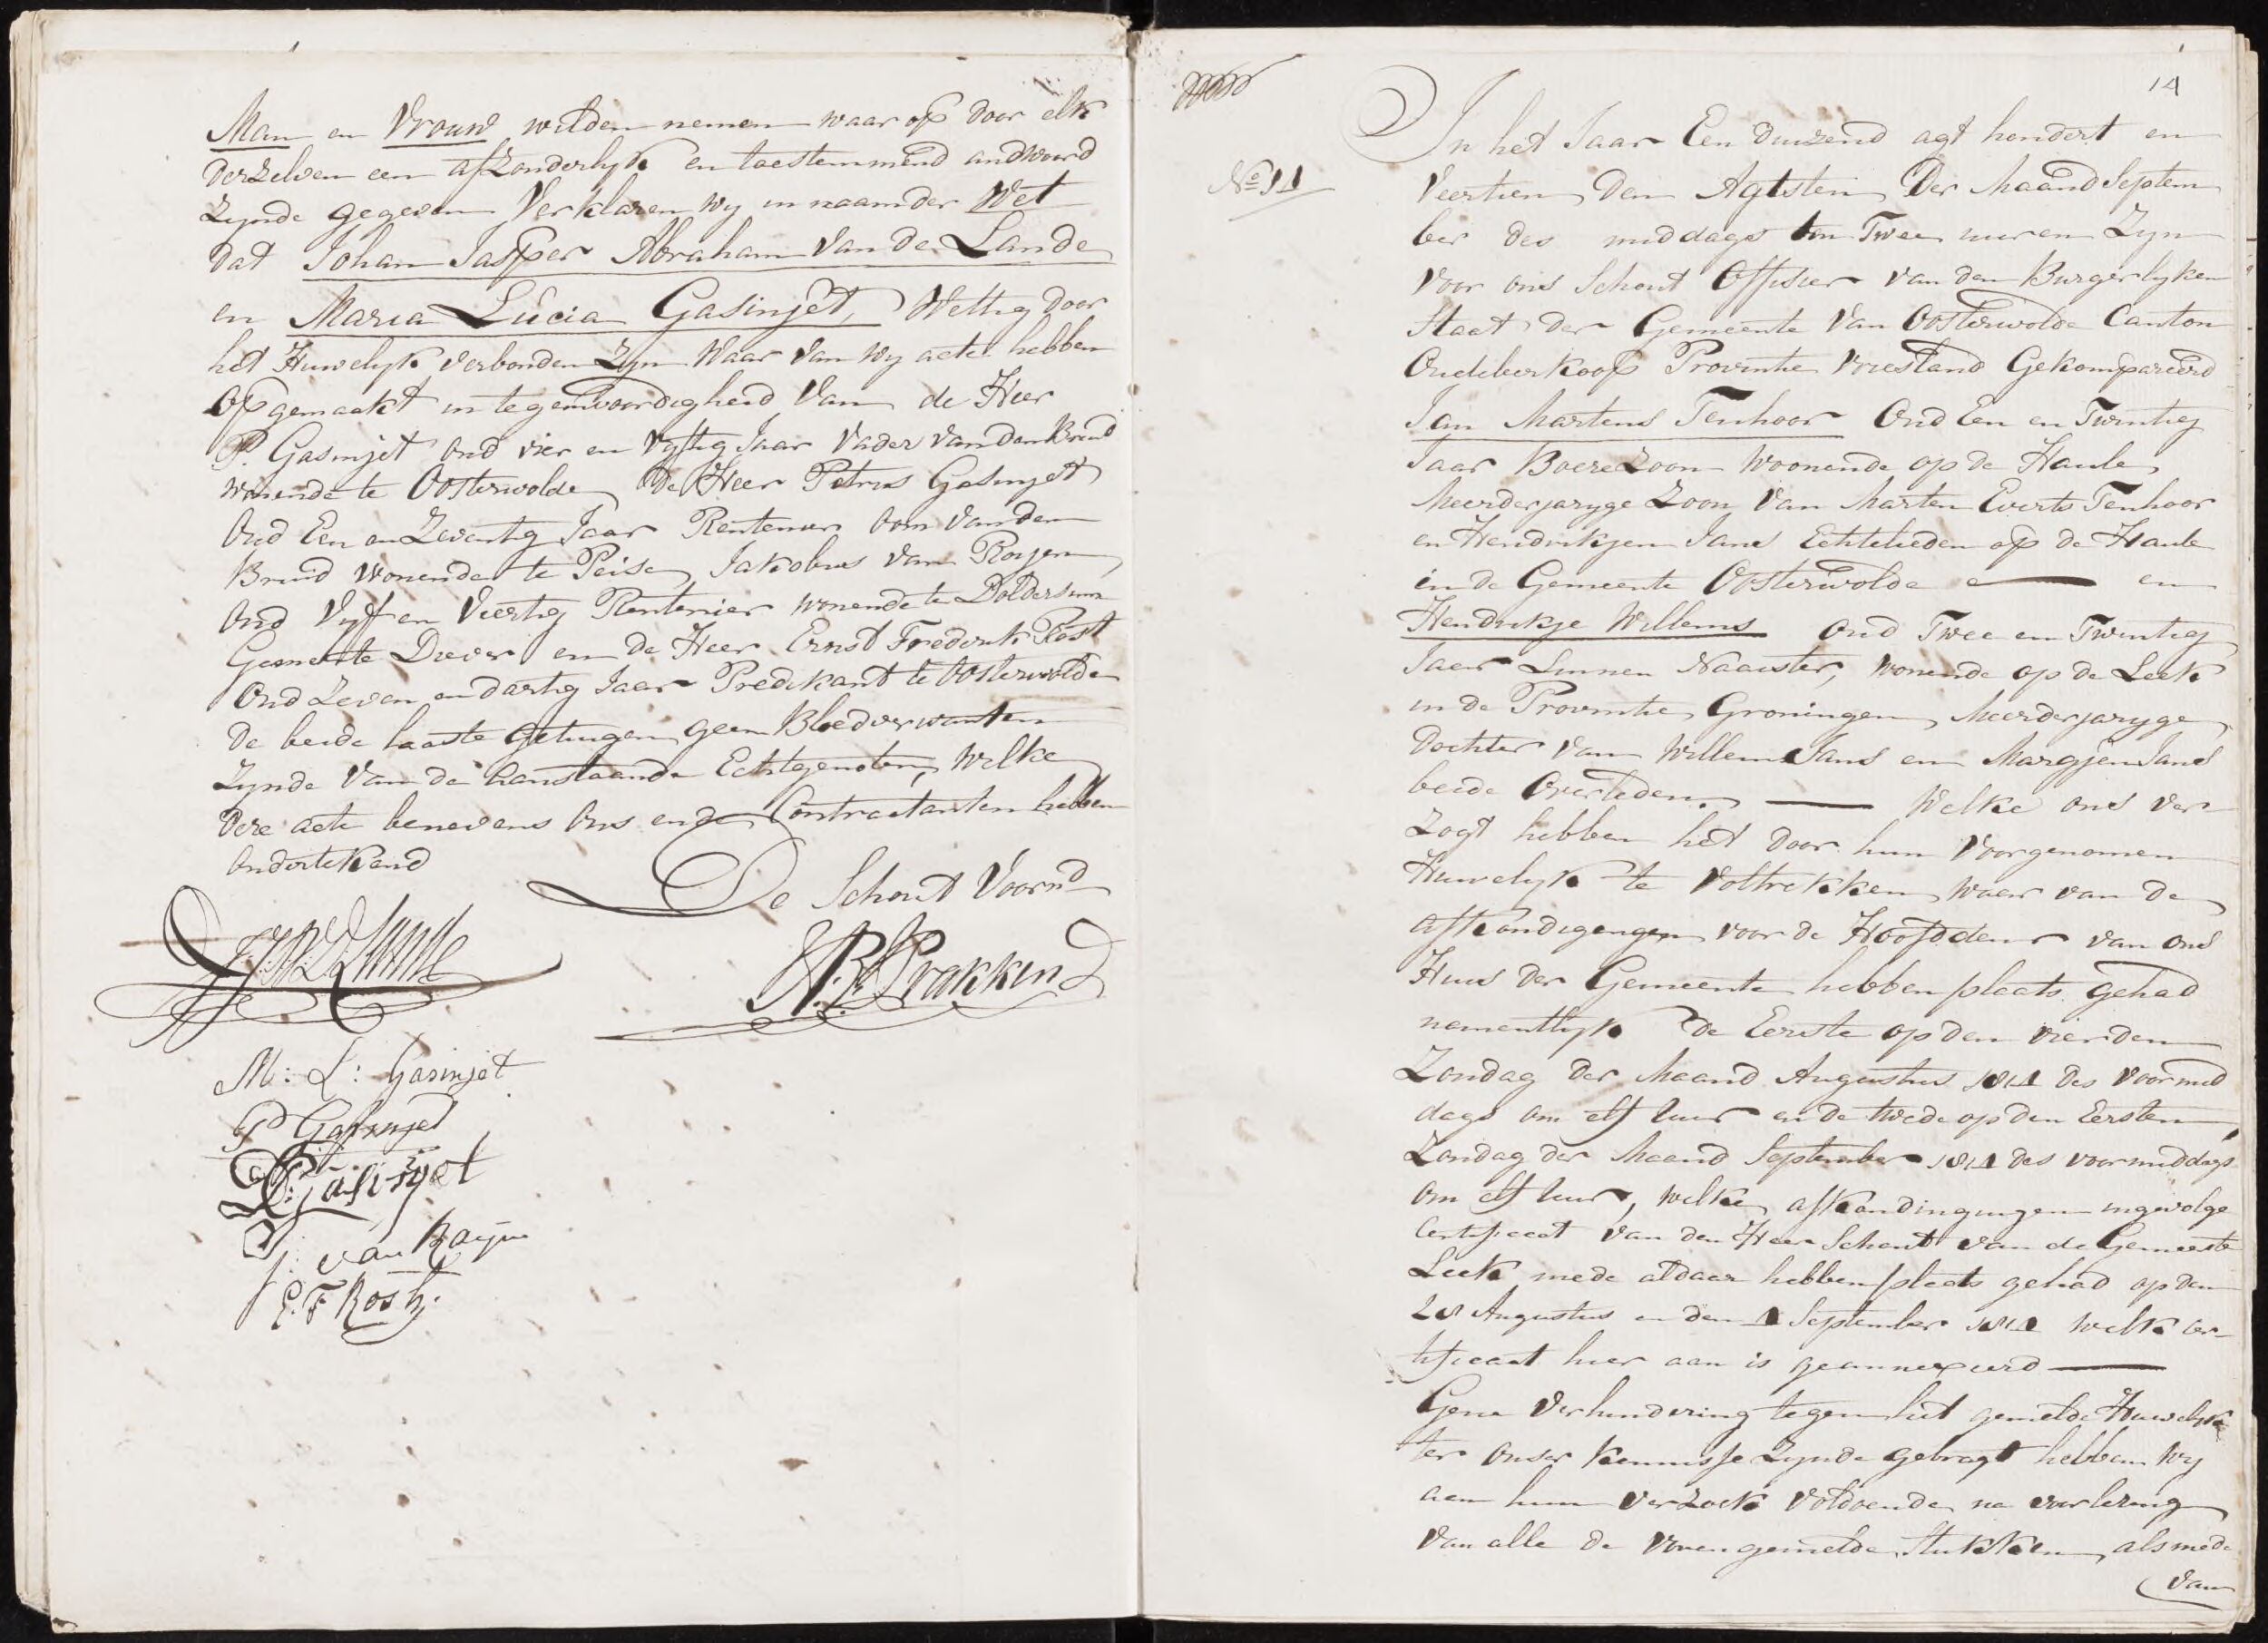 Man en Vrouw wilden nemen waar op door elk
derzelven een afzonderlyk en toestemmend andwoord
Zynde gegeven Verklaren wy in naam der Wet
dat Johan Jasper Abraham Van de Lande
en Maria Lucia Gasinjet, Wettig door
het Huwelyk verbonden Zyn Waar van wy acte hebben
opgemaakt in tegenwoordigheid Van de Heer
P. Gasinjet oud vier en vyftig Jaar Vader van den Bruid
wonende te Oosterwolde de Heer Petrus Gasinjet
Oud Een en Zeventig Jaar Rentenier Oom van den
Bruid Wonende te Peise, Jakobus van Royen
oud Vyf en Veertig Rentenier wonende te Doldersum
Gemeente Diever en de Heer Ernst Frederik Rost
Oud Zeven en dartig Jaar Predikant te Oosterwolde
de beide laaste getuigen geen Bloedverwanten
Zynde Van de aanstaande Echtgenoten, Welke
deze acte benevens ons en de Contractanten hebben
ondertekend
De Schout Voornd
M: L: Gasinjet
P Gasinjet
P: Gasinjet
J: van Royen
E. F. Rost
14
No 11
In het Jaar Een duizend agt hondert en
Veertien, den Agtsten Der Maand Septem
ber des middags om Twee uuren Zyn
voor ons Schout Officier van den Burgerlyken
Staat der Gemeente Van Oosterwolde Canton
Oudeberkoop Provintie Vriesland Gekompareerd
Jan Martens Tenhoor Oud Een en Twintig
Jaar Boere Zoon Woonende op de Haule,
Meerderjaryge Zoon Van Marten Everts Tenhoor
en Hendrikjen Jans Echtelieden op de Haule
in de Gemeente Oosterwolde en
Hendrikje Willems Oud Twee en Twintig
Jaar Linnen Naaister, wonende op de Leek
in de Provintie Groningen, Meerderjaryge
Dochter Van Willem Jans en Margjen Jans
beide Overleden. Welke ons ver
zogt hebben het door hun Voorgenomen
Huwelyk te Voltrekken waar van de
afkondigengen voor de Hoofddeur van ons
Huis der Gemeente hebben plaats gehad
nementlyk de Eerste op den vierden
Zondag der Maand Augustus 1814 des voormid
dags om elf uur en de twede op den Eersten
Zondag der Maand September 1814 des voormiddags
om elf uur, welke afkondingingen ingevolge
Certificaat van den Heer Schout van de Gemeente
Leek mede aldaar hebben plaats gehad op den
28 Augustus en den 4 September 1814 welk cer
tificaat hier aan is geannexeerd
Gene Verhindering tegen het gemelde Huwelyk
ter onser kennisse Zynde gebragt hebben wy
aan hun verzoek Voldoende na voorlezing
Van alle de vorengemelde Stukken, alsmede
van